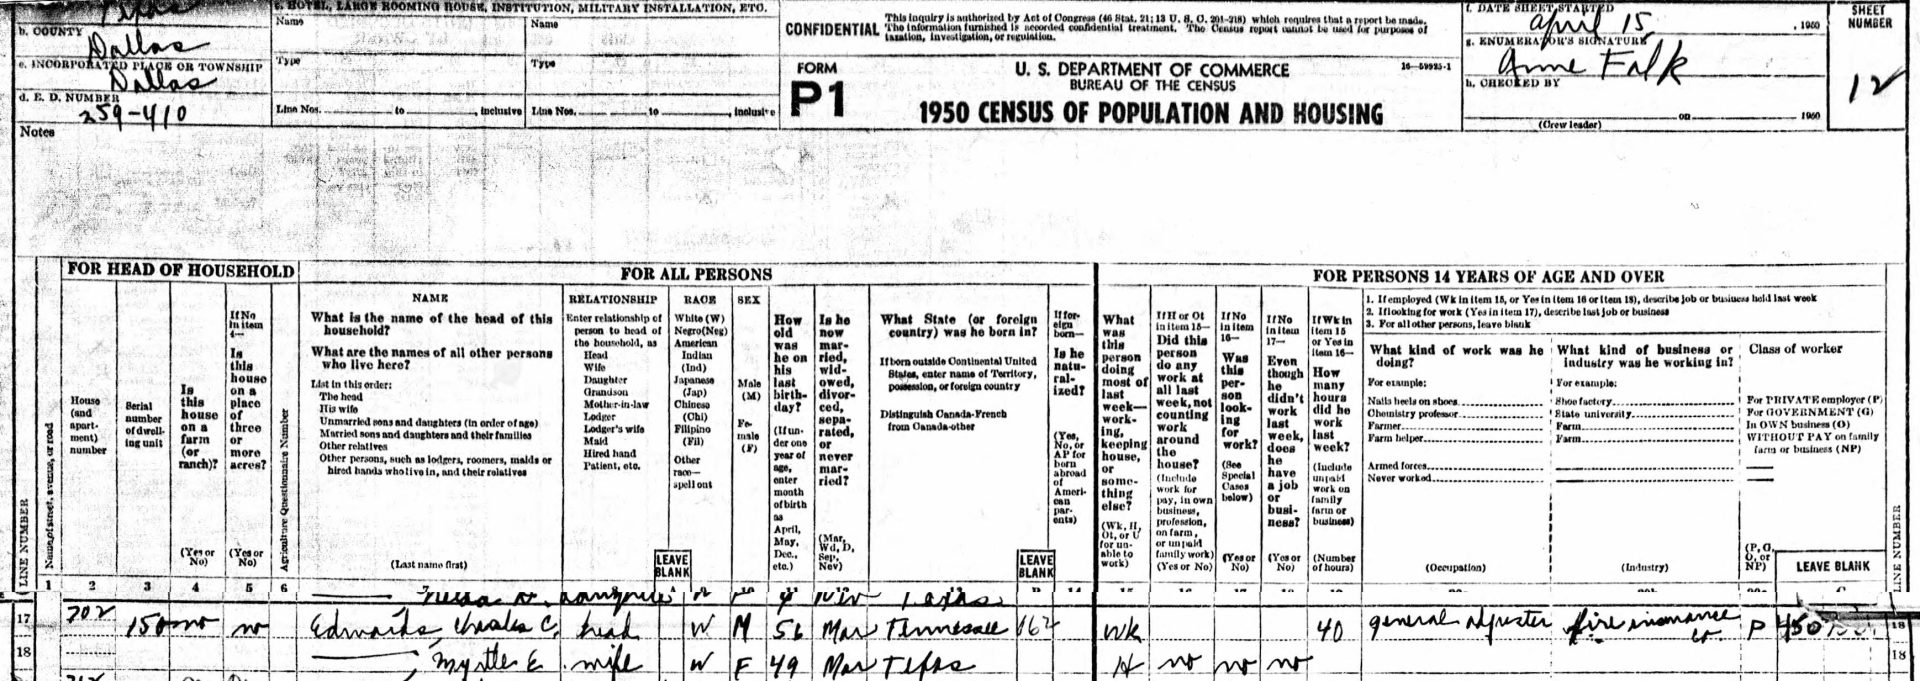 Texas
b. COUNTY
Dallas
c. INCORPORATED PLACE OR TOWNSHIP
Dallas
d. E. D. NUMBER
259-410
e. HOTEL, LARGE ROOMING HOUSE, INSTITUTION, MILITARY INSTALLATION, ETC.
Name Name
Type Type
Line Nos. to , inclusive Line Nos. to , inclusive
CONFIDENTIAL
This inquiry is authorized by Act of Congress (46 Stat. 21; 13 U. S. C. 201-218) which requires that a report be made.
The information furnished is accorded confidential treatment. The Census report cannot be used for purposes of
taxation, investigation, or regulation.
FORM
P1
16—59925-1
U. S. DEPARTMENT OF COMMERCE
BUREAU OF THE CENSUS
1950 CENSUS OF POPULATION AND HOUSING
f. DATE SHEET STARTED
April 15, , 1950
g. ENUMERATOR'S SIGNATURE
Anne Falk
h. CHECKED BY
on 1950
(Crew leader)
SHEET
NUMBER
12
Notes
FOR HEAD OF HOUSEHOLD
FOR ALL PERSONS
FOR PERSONS 14 YEARS OF AGE AND OVER
LINE NUMBER
Name of street, avenue, or road
House
(and
apart-
ment)
number
Serial
number
of dwell-
ing unit
Is
this
house
on a
farm
(or
ranch)?
(Yes or
No)
If No
in item
4—
Is
this
house
on a
place
of
three
or
more
acres?
(Yes or
No)
Agriculture Questionnaire Number
NAME
What is the name of the head of this
household?
What are the names of all other persons
who live here?
List in this order:
The head
His wife
Unmarried sons and daughters (in order of age)
Married sons and daughters and their families
Other relatives
Other persons, such as lodgers, roomers, maids or
hired hands who live in, and their relatives
(Last name first)
RELATIONSHIP
Enter relationship of
person to head of
the household, as
Head
Wife
Daughter
Grandson
Mother-in-law
Lodger
Lodger's wife
Maid
Hired hand
Patient, etc.
LEAVE
BLANK
RACE
White (W)
Negro(Neg)
American
Indian
(Ind)
Japanese
(Jap)
Chinese
(Chi)
Filipino
(Fil)
Other
race—
spell out
SEX
Male
(M)
Fe-
male
(F)
How
old
was
he on
his
last
birth-
day?
(If un-
der one
year of
age,
enter
month
of birth
as
April,
May,
Dec.,
etc.)
Is he
now
mar-
ried,
wid-
owed,
divor-
ced,
sepa-
rated,
or
never
mar-
ried?
(Mar,
Wd, D,
Sep,
Nev)
What State (or foreign
country) was he born in?
If born outside Continental United
States, enter name of Territory,
possession, or foreign country
Distinguish Canada-French
from Canada-other
LEAVE
BLANK
If for-
eign
born—
Is he
natu-
ral-
ized?
(Yes,
No, or
AP for
born
abroad
of
Ameri-
can
par-
ents)
What
was
this
person
doing
most of
last
week—
work-
ing,
keeping
house,
or
some-
thing
else?
(Wk, H,
Ot, or U
for un-
able to
work)
If H or Ot
in item 15—
Did this
person
do any
work at
all last
week, not
counting
work
around
the
house?
(Include
work for
pay, in own
business,
profession,
on farm,
or unpaid
family work)
(Yes or No)
If No
in item
16—
Was
this
per-
son
look-
ing
for
work?
(See
Special
Cases
below)
(Yes or
No)
If No
in item
17—
Even
though
he
didn't
work
last
week,
does
he
have
a job
or
busi-
ness?
(Yes or
No)
If Wk in
item 15
or Yes in
item 16—
How
many
hours
did he
work
last
week?
(Include
unpaid
work on
family
farm or
business)
(Number
of hours)
1. If employed (Wk in item 15, or Yes in item 16 or item 18), describe job or business held last week
2. If looking for work (Yes in item 17), describe last job or business
3. For all other persons, leave blank
What kind of work was he
doing?
For example:
Nails heels on shoes
Chemistry professor
Farmer
Farm helper
Armed forces
Never worked
(Occupation)
What kind of business or
industry was he working in?
For example:
Shoe factory
State university
Farm
Farm
(Industry)
Class of worker
For PRIVATE employer (P)
For GOVERNMENT (G)
In OWN business (O)
WITHOUT PAY on family
farm or business (NP)
(P, G,
O, or
NP)
LEAVE BLANK
LINE NUMBER
1 2 3 4 5 6
Texas
17 702 150 no no Edwards, Charles C. head W M 56 Mar Tennessee 162 Wk 40 general adjuster fire insurance co. P 450 18
18 Myrtle E wife W F 49 Mar Texas H no no no 18